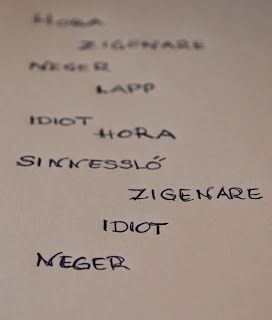 HORA
ZIGENARE
NEGER
LAPP
IDIOT
HORA
SINNESSLÖ
ZIGENARE
IDIOT
NEGER